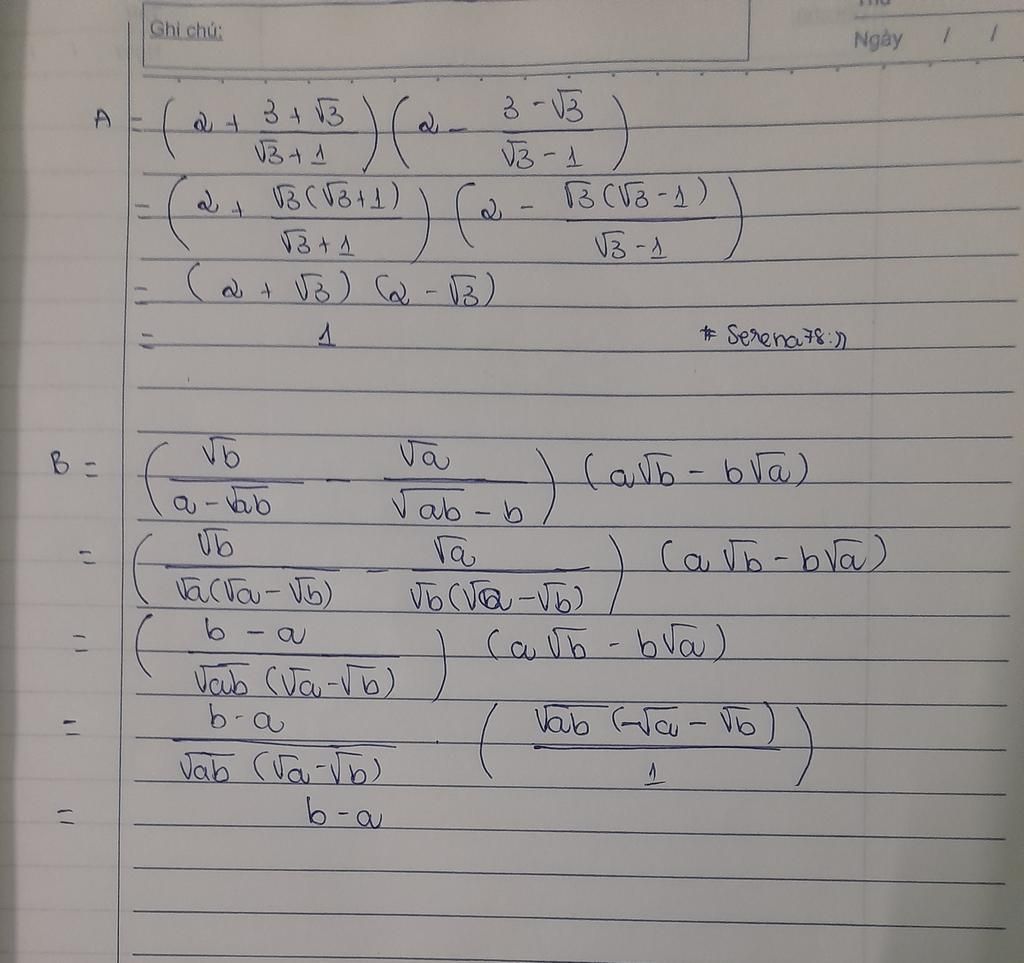 Ghi chú:
Ngày / /
A = (2 + (3 + √3)/(√3 + 1)) (2 - (3 - √3)/(√3 - 1))
= (2 + √3(√3+1)/(√3+1)) (2 - √3(√3-1)/(√3-1))
= (2 + √3) (2 - √3)
= 1 # Serena78:))
B = (√b/(a - √ab) - √a/(√ab - b)) (a√b - b√a)
= (√b/(√a(√a - √b)) - √a/(√b(√a - √b))) (a√b - b√a)
= ((b - a)/(√ab (√a - √b))) (a√b - b√a)
= (b - a)/(√ab (√a - √b)) · (√ab (√a - √b)/1)
= b - a